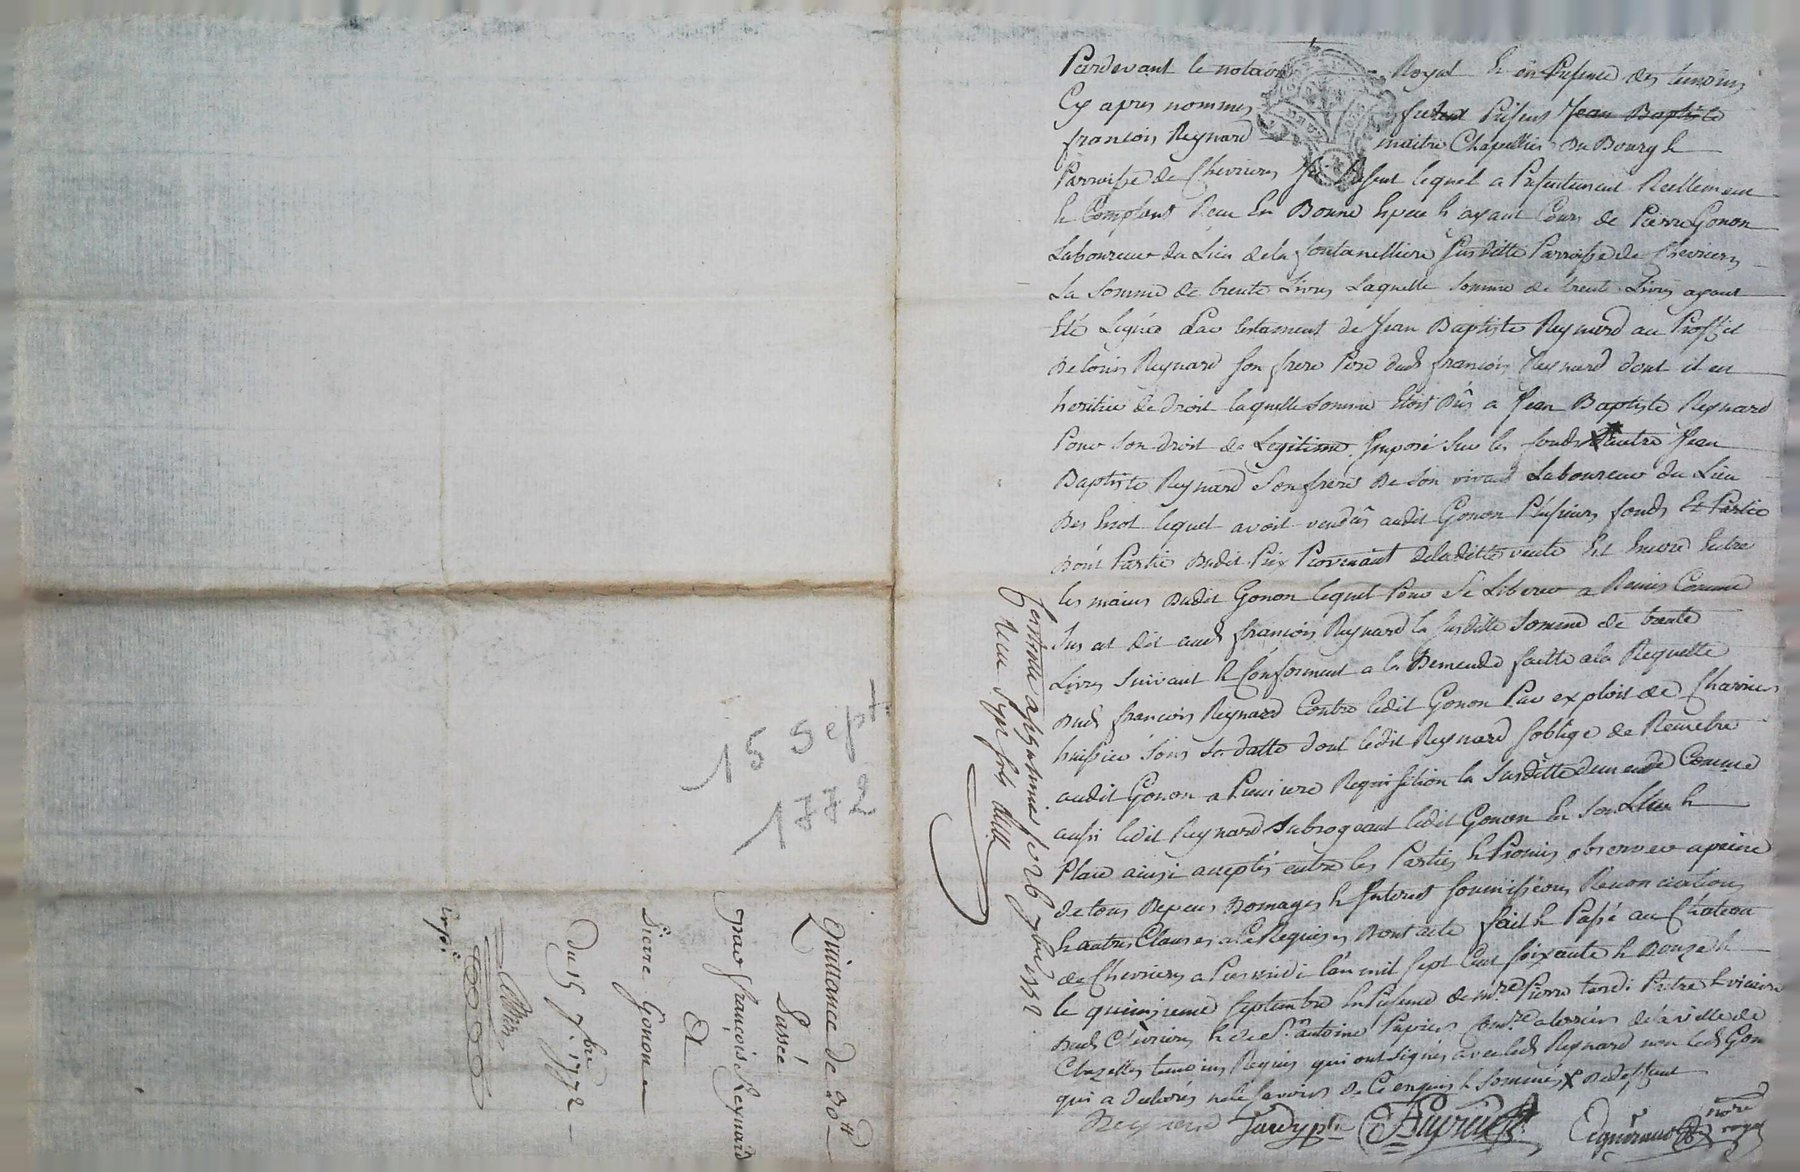 Pardevant le notaire Royal & en Presence des temoins
Cy apres nommés fut Présent Jean Baptiste
francois Reynard maitre Chapellier du Bourg &
Parroisse de Chevrieres lequel a Présentement Reellement
& Comptant Reçu En Bonne Espece & ayant Cours de Pierre Gonon
Laboureur du Lieu dela fontanelliere susditte Parroisse de Chevrieres
La Somme de trente Livres Laquelle Somme de trente Livres ayant
Eté Leguée Par testament de Jean Baptiste Reynard au Proffit
De Reynard son frere Pere dud francois Reynard dont il est
heritier de droit laquelle Somme Etoit Dûe a Jean Baptiste Reynard
Pour Son droit de Legitime Imposé Sur les fonds d'autre Jean
Baptiste Reynard Son frere De Son vivant Laboureur du Lieu
lequel avoit vendûs audit Gonon Plusieurs fonds Et Partie
Dont Partie Dudit Prix Provenant deladitte vente Est Encore Entre
les mains Dudit Gonon lequel Pour Se Liberer a Remis Comme
Sus est dit aud francois Reynard la Susditte Somme de trente
Livres Suivant & Conforment a la Demende faitte ala Requette
Dud francois Reynard Contre ledit Gonon Par exploit de
huissier Sous Sa datte dont ledit Reynard Soblige de Remettre
audit Gonon a Premiere Requisition la Susditte demende Comme
aussi ledit Reynard Subrogeant ledit Gonon En Son Lieu &
Place ainsi acceptés entre les Parties & Promis observer apeine
de tous Depens Domages & Interest Soumissions Renonciations
& autres Clauses a Ce Requises Dont acte fait & Passé au Chateau
de Chevrieres a Presmidi l'an mil Sept Cent Soixante & Douze &
le quinzieme Septembre En Presence de mre Pierre tardi Pretre & vicaire
Dud Chevrieres & de Sr antoine de la ville de
Chazelles temoins Requis qui ont Signés avec led Reynard non led Gonon
qui a declarés ne le Savoir de Ce enquis & Sommés
Reynard Tardy ptre notre royal
Controllé a St 26 7bre 1772
Reçu Sols
15 Sept.
1772
Quittance de 30tt
Passée
par francois Reynard
A
Pierre Gonon
Du 15 7bre 1772
Exp.